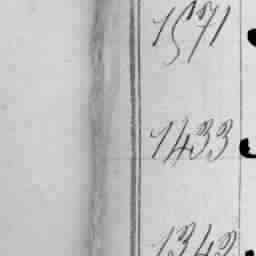 1571
1433
1343